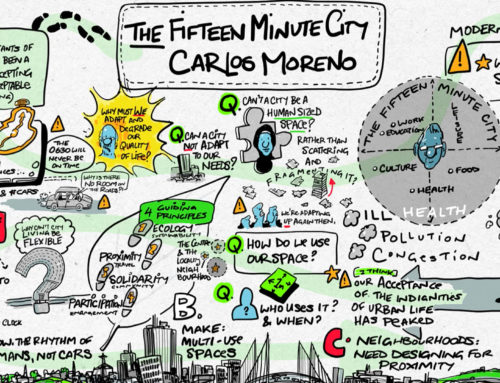 THE FIFTEEN MINUTE CITY
CARLOS MORENO
TANTS OF
BEEN A
CEPTING
EPTABLE
THE
0630 WILL
NEVER BE
ON TIME
WHY MUST WE
ADAPT AND
DEGRADE
OUR
QUALITY
OF LIFE?
WHY IS THERE
NO ROOM ON
THE ROADS?
# CARS
WHY CAN'T CITY
LIVING BE
FLEXIBLE
CLOCK
OWN THE RHYTHM OF
MANS, NOT CARS
Q. CAN A CITY
NOT ADAPT
TO OUR
NEEDS?
Q. CAN'T A CITY BE A
HUMAN SIZED
SPACE?
RATHER THAN
SCATTERING
AND
FRAGMENTING IT?
WE'RE ADAPTING
UP AGAIN THEN.
4 GUIDING
PRINCIPLES
ECOLOGY
SUSTAINABILITY
PROXIMITY
TRAVEL
SOLIDARITY
COMMUNITY
PARTICIPATION
ENGAGEMENT
THE CENTRE
& THE
LOCUS
NEIGH
BOURHOOD
Q. HOW DO WE USE
OUR SPACE?
Q.
WHO USES IT?
& WHEN?
B.
MAKE:
MULTI-USE
SPACES
MODERN
THE FIFTEEN MINUTE CITY
WORK
EDUCATION
LEISURE
CULTURE
FOOD
HEALTH
HEALTH
ILL
POLLUTION
CONGESTION
I THINK
OUR ACCEPTANCE
OF THE INDIANITIES
OF URBAN LIFE
HAS PEAKED
C. NEIGHBOURHOODS:
NEED DESIGNING FOR
PROXIMITY